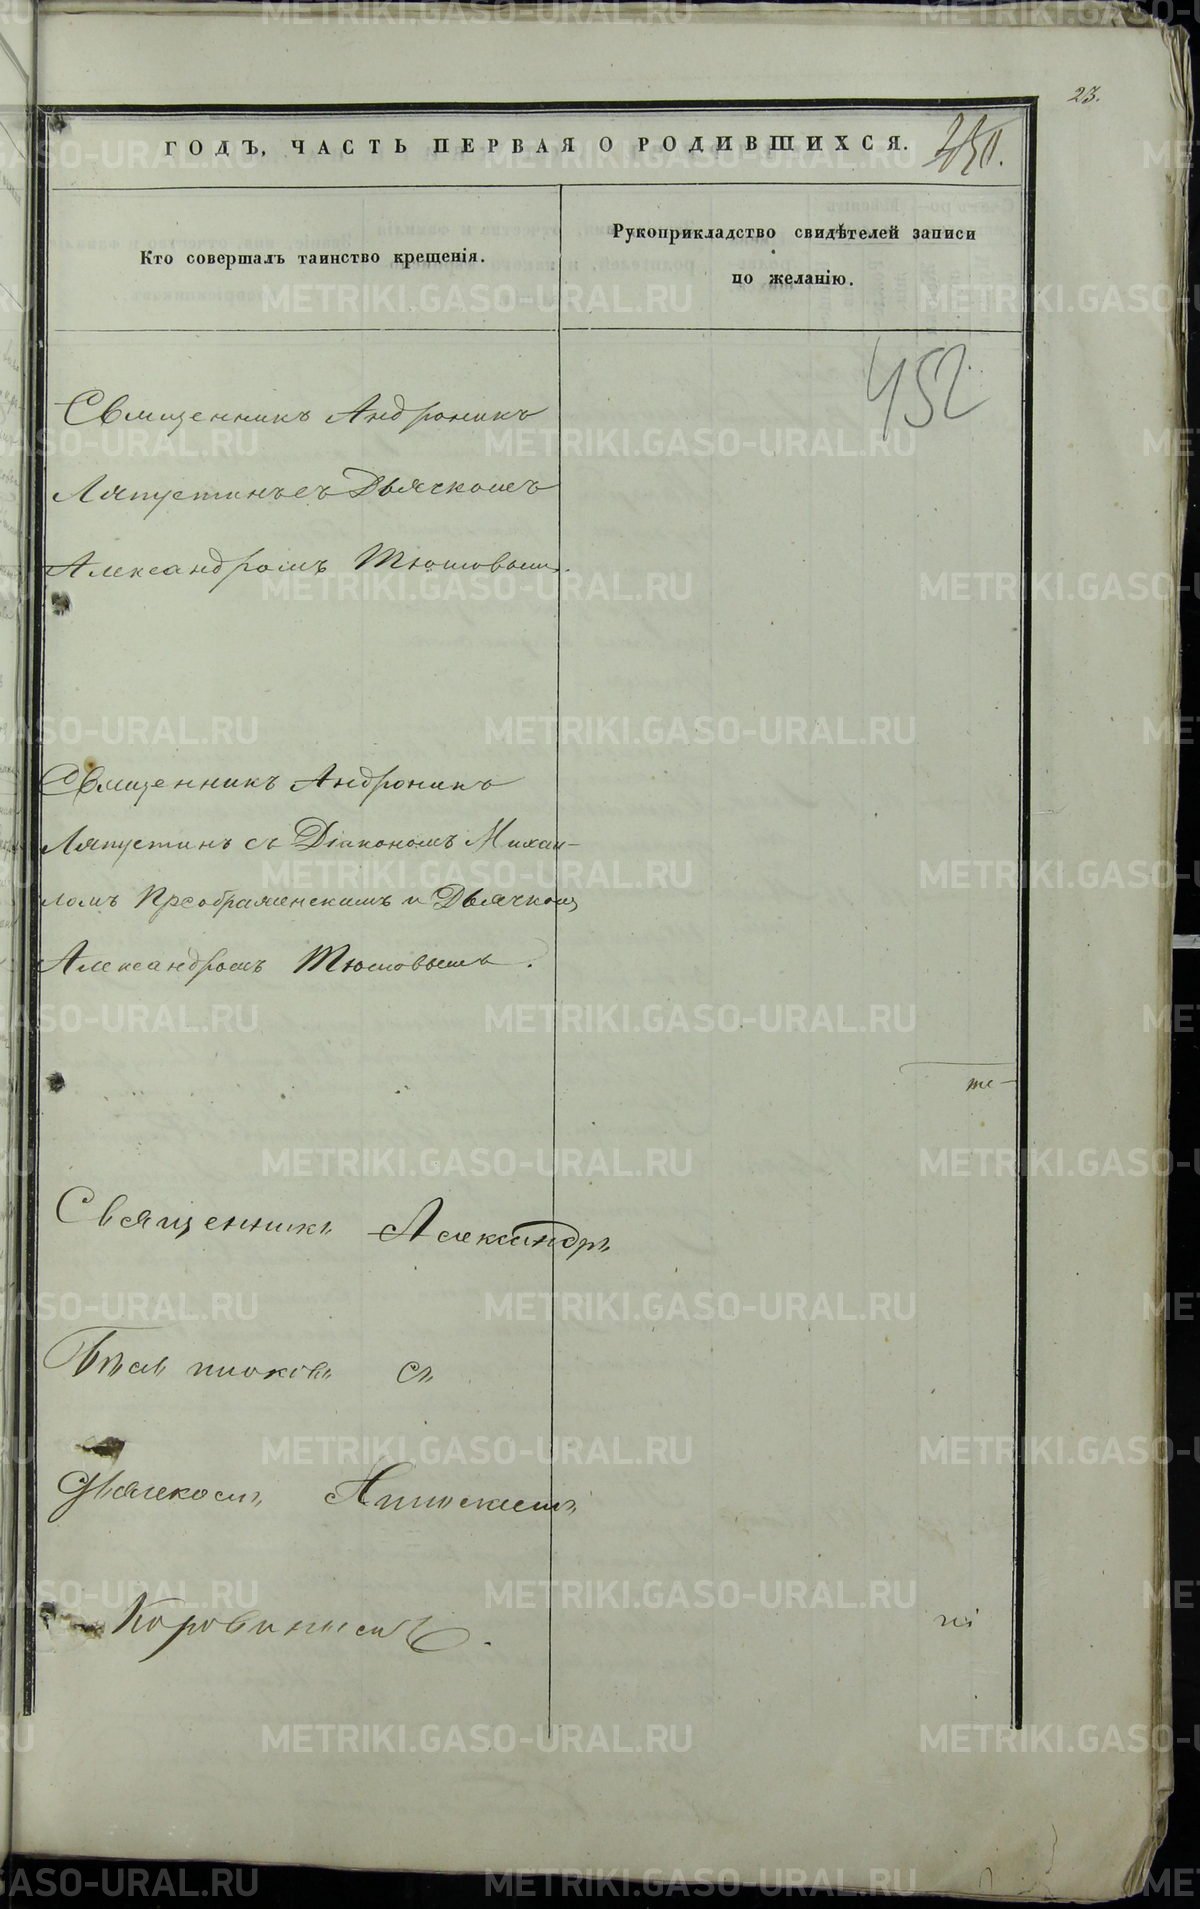 23.
ГОДЪ, ЧАСТЬ ПЕРВАЯ О РОДИВШИХСЯ.
Кто совершалъ таинство крещенія.
Рукоприкладство свидѣтелей записи
по желанію.
452
Священникъ Андроникъ
Ляпустинъ съ Дьячкомъ
Александромъ Тюшовымъ.
Священникъ Андроникъ
Ляпустинъ съ Діакономъ Михаи-
ломъ Преображенскимъ и Дьячкомъ
Александромъ Тюшовымъ.
те-
Священникъ Александръ
съ
Дьячкомъ
Коровинымъ.
ні
METRIKI.GASO-URAL.RU